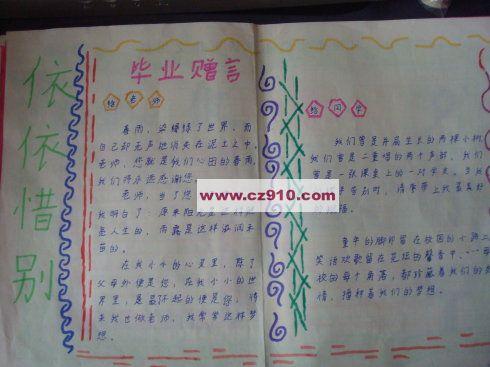 依依惜别
毕业赠言
给老师
春雨，染绿了世界，而
自己却无声地消失在泥土之中。
老师，您就是我们心田的春雨，
我们将永远感谢您。
老师，
我明白了：原来
是人生的，而露是这样滋润禾
苗的。
在我小小的心灵里，除了
父母外便是您，在我小小的世
界里，最了不起的便是您，将
来我也做老师，我常常这样梦
想。
给同学
我们曾是并肩生长的两棵小树，
我们曾是一重唱的两个声部，我们
曾是一张课桌上的一对学友。
告别时，请带上我最真好
的祝福。
童年的脚印留在校园的小路上，
笑语欢歌留在花冠的馨香中，……母
校的每个角落，都珍藏着我们的友
情，播种着我们的梦想。
www.cz910.com